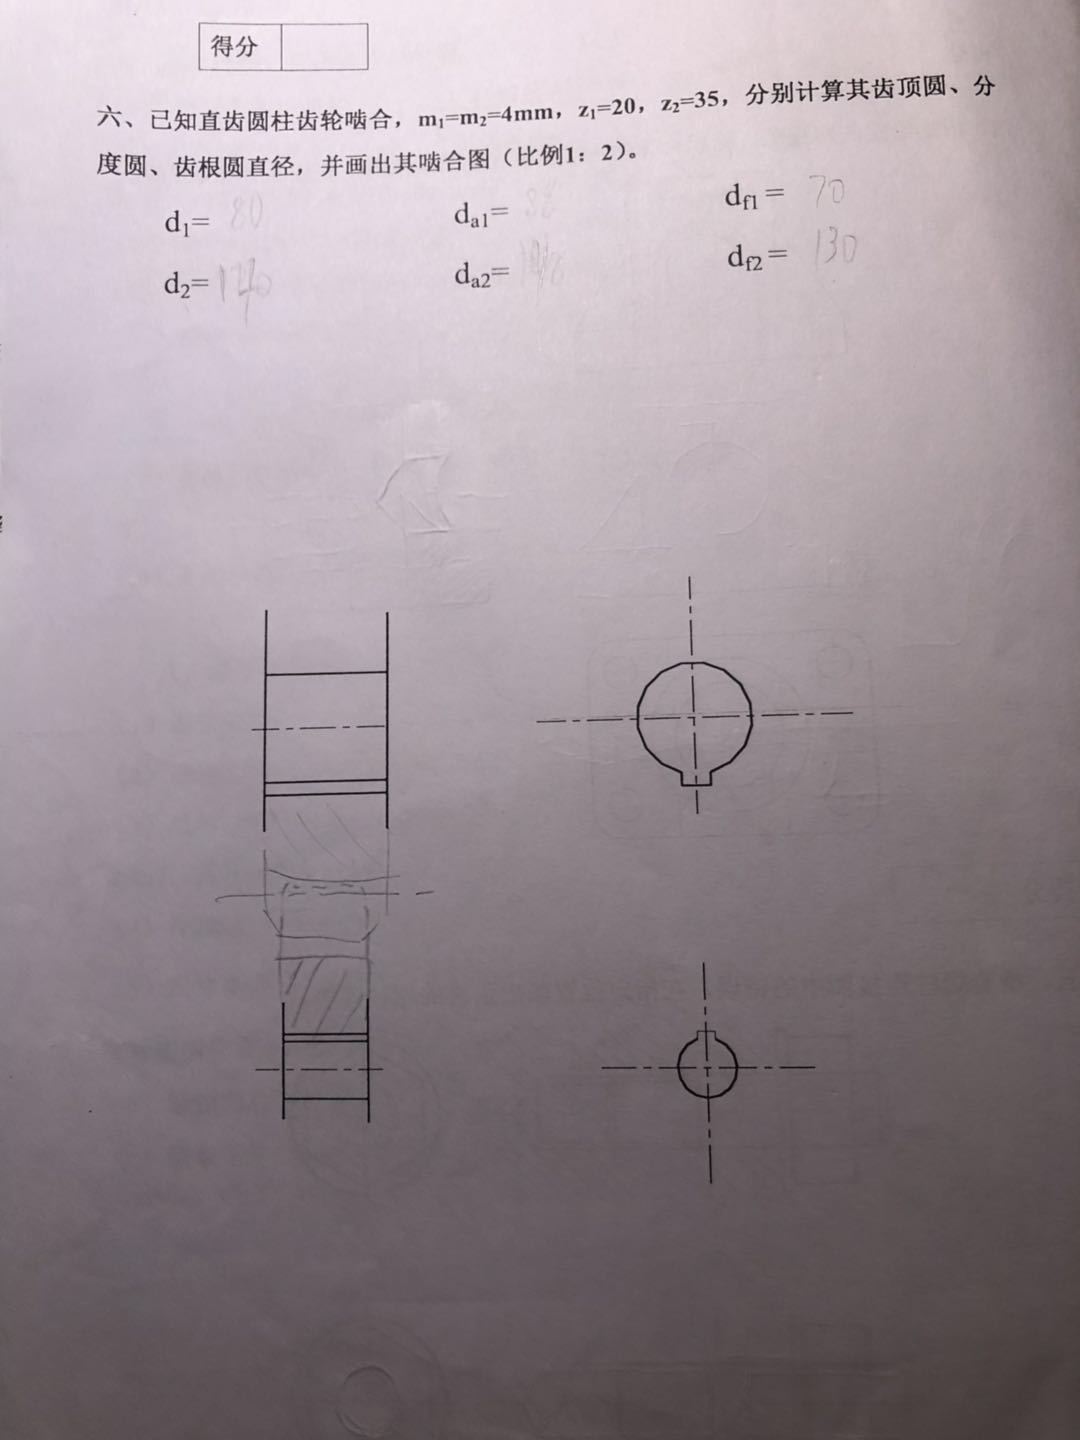 得分
六、已知直齿圆柱齿轮啮合，m₁=m₂=4mm，z₁=20，z₂=35，分别计算其齿顶圆、分
度圆、齿根圆直径，并画出其啮合图（比例1：2）。
d₁= 80 da1= 88 df1 = 70
d₂= 140 da2= df2 = 130